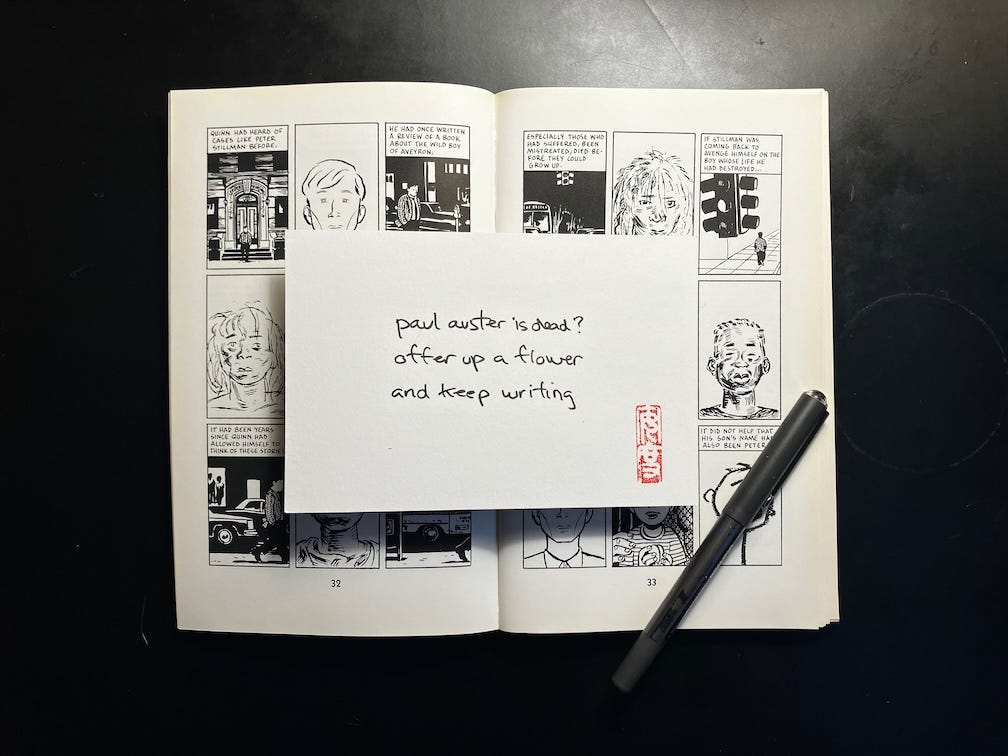 QUINN HAD HEARD OF
CASES LIKE PETER
STILLMAN BEFORE.
HE HAD ONCE WRITTEN
A REVIEW OF A BOOK
ABOUT THE WILD BOY
OF AVEYRON.
IT HAD BEEN YEARS
SINCE QUINN HAD
ALLOWED HIMSELF TO
THINK OF THESE STORIES
32
ESPECIALLY THOSE WHO
HAD SUFFERED, BEEN
MISTREATED, DIED BE-
FORE THEY COULD
GROW UP.
IF STILLMAN WAS
COMING BACK TO
AVENGE HIMSELF ON THE
BOY WHOSE LIFE HE
HAD DESTROYED...
IT DID NOT HELP THAT
HIS SON'S NAME HAD
ALSO BEEN PETER
33
paul auster is dead?
offer up a flower
and keep writing